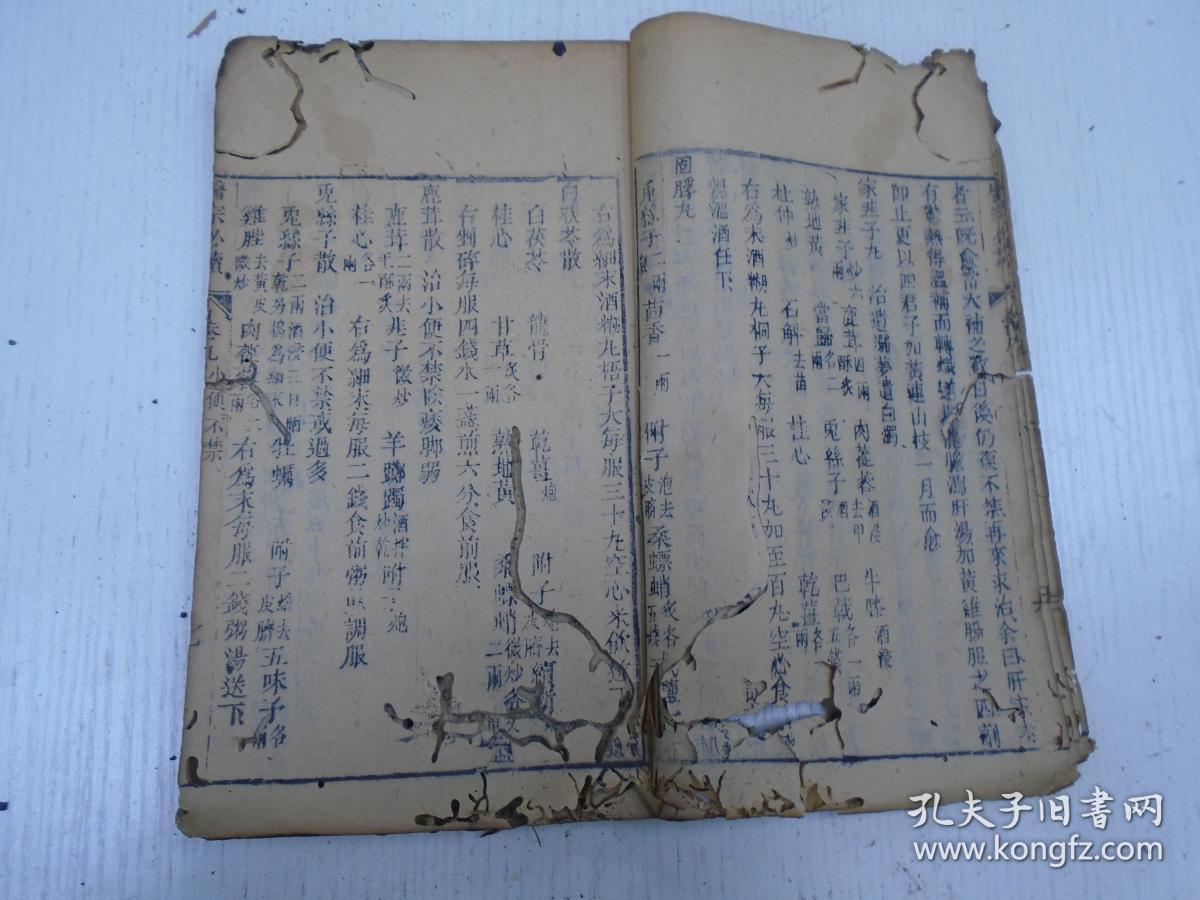 者云既愈當大補之數日後仍復不禁再來求治余曰肝家
有鬱熱得溫補而轉熾遂以龍膽瀉肝湯加黃雞腸服之四劑
即止更以四君子加黃連山枝一月而愈
家韭子丸 治遺溺夢遺白濁
家韭子炒六兩 鹿茸四兩酥炙 肉蓯蓉酒浸去甲 牛膝酒浸
熟地黃 當歸各二兩 兎絲子酒浸 巴戟各一兩五錢
杜仲炒 石斛去苗 桂心 乾薑各一兩
右為末酒糊丸桐子大每服三十丸加至百丸空心食
湯溫酒任下
固脬丸
兎絲子二兩製 茴香一兩 附子泡去皮臍 桑螵蛸炙各五錢
右爲細末酒糊丸梧子大每服三十丸空心米飲送下
白茯苓散
白茯苓 龍骨 乾薑炮 附子炮去皮臍 續
桂心 甘草炙各一兩 熟地黃 桑螵蛸微炒各二兩
右剉碎每服四錢水一盞煎六分食前服
鹿茸散 治小便不禁陰痿脚弱
鹿茸二兩去毛酥炙 韭子微炒 羊躑躅酒拌炒乾 附子炮
桂心各一兩 右爲細末每服二錢食前粥 調服
兎絲子散 治小便不禁或過多
兎絲子二兩酒浸三日晒乾另搗爲細末 牡蠣 附子炮去皮臍 五味子各
雞䏶去黃皮微炒 肉蓯蓉各二兩 右爲末每服二錢粥湯送下
醫宗必讀 卷九 小便不禁
孔夫子旧书网
www.kongfz.com